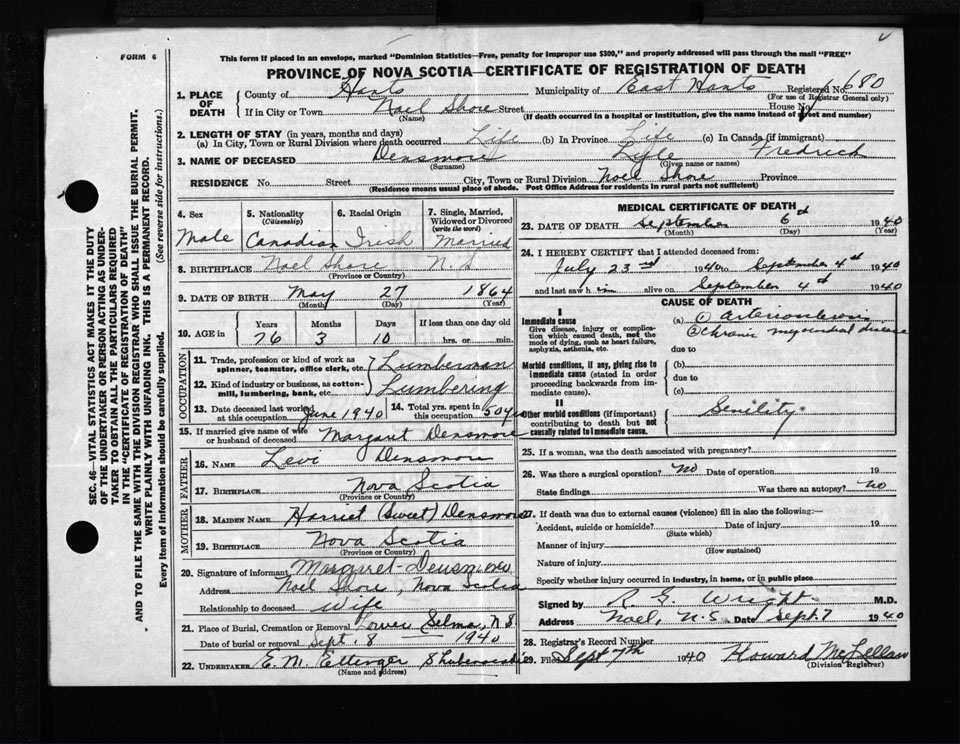 FORM 6
This form if placed in an envelope, marked "Dominion Statistics—Free, penalty for improper use $300," and properly addressed will pass through the mail "FREE"
PROVINCE OF NOVA SCOTIA—CERTIFICATE OF REGISTRATION OF DEATH
1. PLACE OF DEATH County of Hants Municipality of East Hants Registered No. 680
(For use of Registrar General only)
If in City or Town Noel Shore Street House No.
(Name) (If death occurred in a hospital or institution, give the name instead of street and number)
2. LENGTH OF STAY (in years, months and days)
(a) In City, Town or Rural Division where death occurred Life (b) In Province Life (c) In Canada (if immigrant)
3. NAME OF DECEASED Densmore Lyle Fredrick
(Surname) (Given name or names)
RESIDENCE No. Street City, Town or Rural Division Noel Shore Province
(Residence means usual place of abode. Post Office Address for residents in rural parts not sufficient)
4. Sex 5. Nationality (Citizenship) 6. Racial Origin 7. Single, Married, Widowed or Divorced (write the word)
Male Canadian Irish Married
8. BIRTHPLACE Noel Shore N.S
(Province or Country)
9. DATE OF BIRTH May 27 1864
(Month) (Day) (Year)
10. AGE in Years Months Days If less than one day old
76 3 10 hrs. or min.
OCCUPATION
11. Trade, profession or kind of work as spinner, teamster, office clerk, etc. Lumberman
12. Kind of industry or business, as cotton-mill, lumbering, bank, etc. Lumbering
13. Date deceased last worked at this occupation June 1940 14. Total yrs. spent in this occupation 50 yr
15. If married give name of wife or husband of deceased Margaret Densmore
FATHER
16. NAME Levi Densmore
17. BIRTHPLACE Nova Scotia
(Province or Country)
MOTHER
18. MAIDEN NAME Harriet (Sweet) Densmore
19. BIRTHPLACE Nova Scotia
(Province or Country)
20. Signature of informant Margaret Densmore
Address Noel Shore, Nova Scotia
Relationship to deceased Wife
21. Place of Burial, Cremation or Removal Lower Selma, N S
Date of burial or removal Sept. 8 — 1940
22. UNDERTAKER E. M. Ettinger Shubenacadie
(Name and address)
MEDICAL CERTIFICATE OF DEATH
23. DATE OF DEATH September 6th 1940
(Month) (Day) (Year)
24. I HEREBY CERTIFY that I attended deceased from:
July 23rd 1940 to September 4th 1940
and last saw him alive on September 4th 1940
CAUSE OF DEATH
I
Immediate cause (a) ① arteriosclerosis
Give disease, injury or complication which caused death, not the mode of dying, such as heart failure, asphyxia, asthenia, etc. ② chronic myocardial disease
due to
Morbid conditions, if any, giving rise to immediate cause (stated in order proceeding backwards from immediate cause). (b)
due to
(c)
II
Other morbid conditions (if important) contributing to death but not causally related to immediate cause. Senility
25. If a woman, was the death associated with pregnancy?
26. Was there a surgical operation? no Date of operation 19
State findings Was there an autopsy? no
27. If death was due to external causes (violence) fill in also the following:—
Accident, suicide or homicide? Date of injury 19
(State which)
Manner of injury
(How sustained)
Nature of injury
Specify whether injury occurred in industry, in home, or in public place
Signed by R. G. Wright M.D.
Address Noel, N.S. Date Sept. 7 1940
28. Registrar's Record Number
29. Filed Sept 7th 1940 Howard McLellan
(Division Registrar)
SEC. 46—VITAL STATISTICS ACT MAKES IT THE DUTY
OF THE UNDERTAKER OR PERSON ACTING AS UNDER-
TAKER TO OBTAIN ALL THE PARTICULARS REQUIRED
IN THE "CERTIFICATE OF REGISTRATION OF DEATH"
AND TO FILE THE SAME WITH THE DIVISION REGISTRAR WHO SHALL ISSUE THE BURIAL PERMIT.
WRITE PLAINLY WITH UNFADING INK. THIS IS A PERMANENT RECORD.
Every item of information should be carefully supplied. (See reverse side for instructions.)